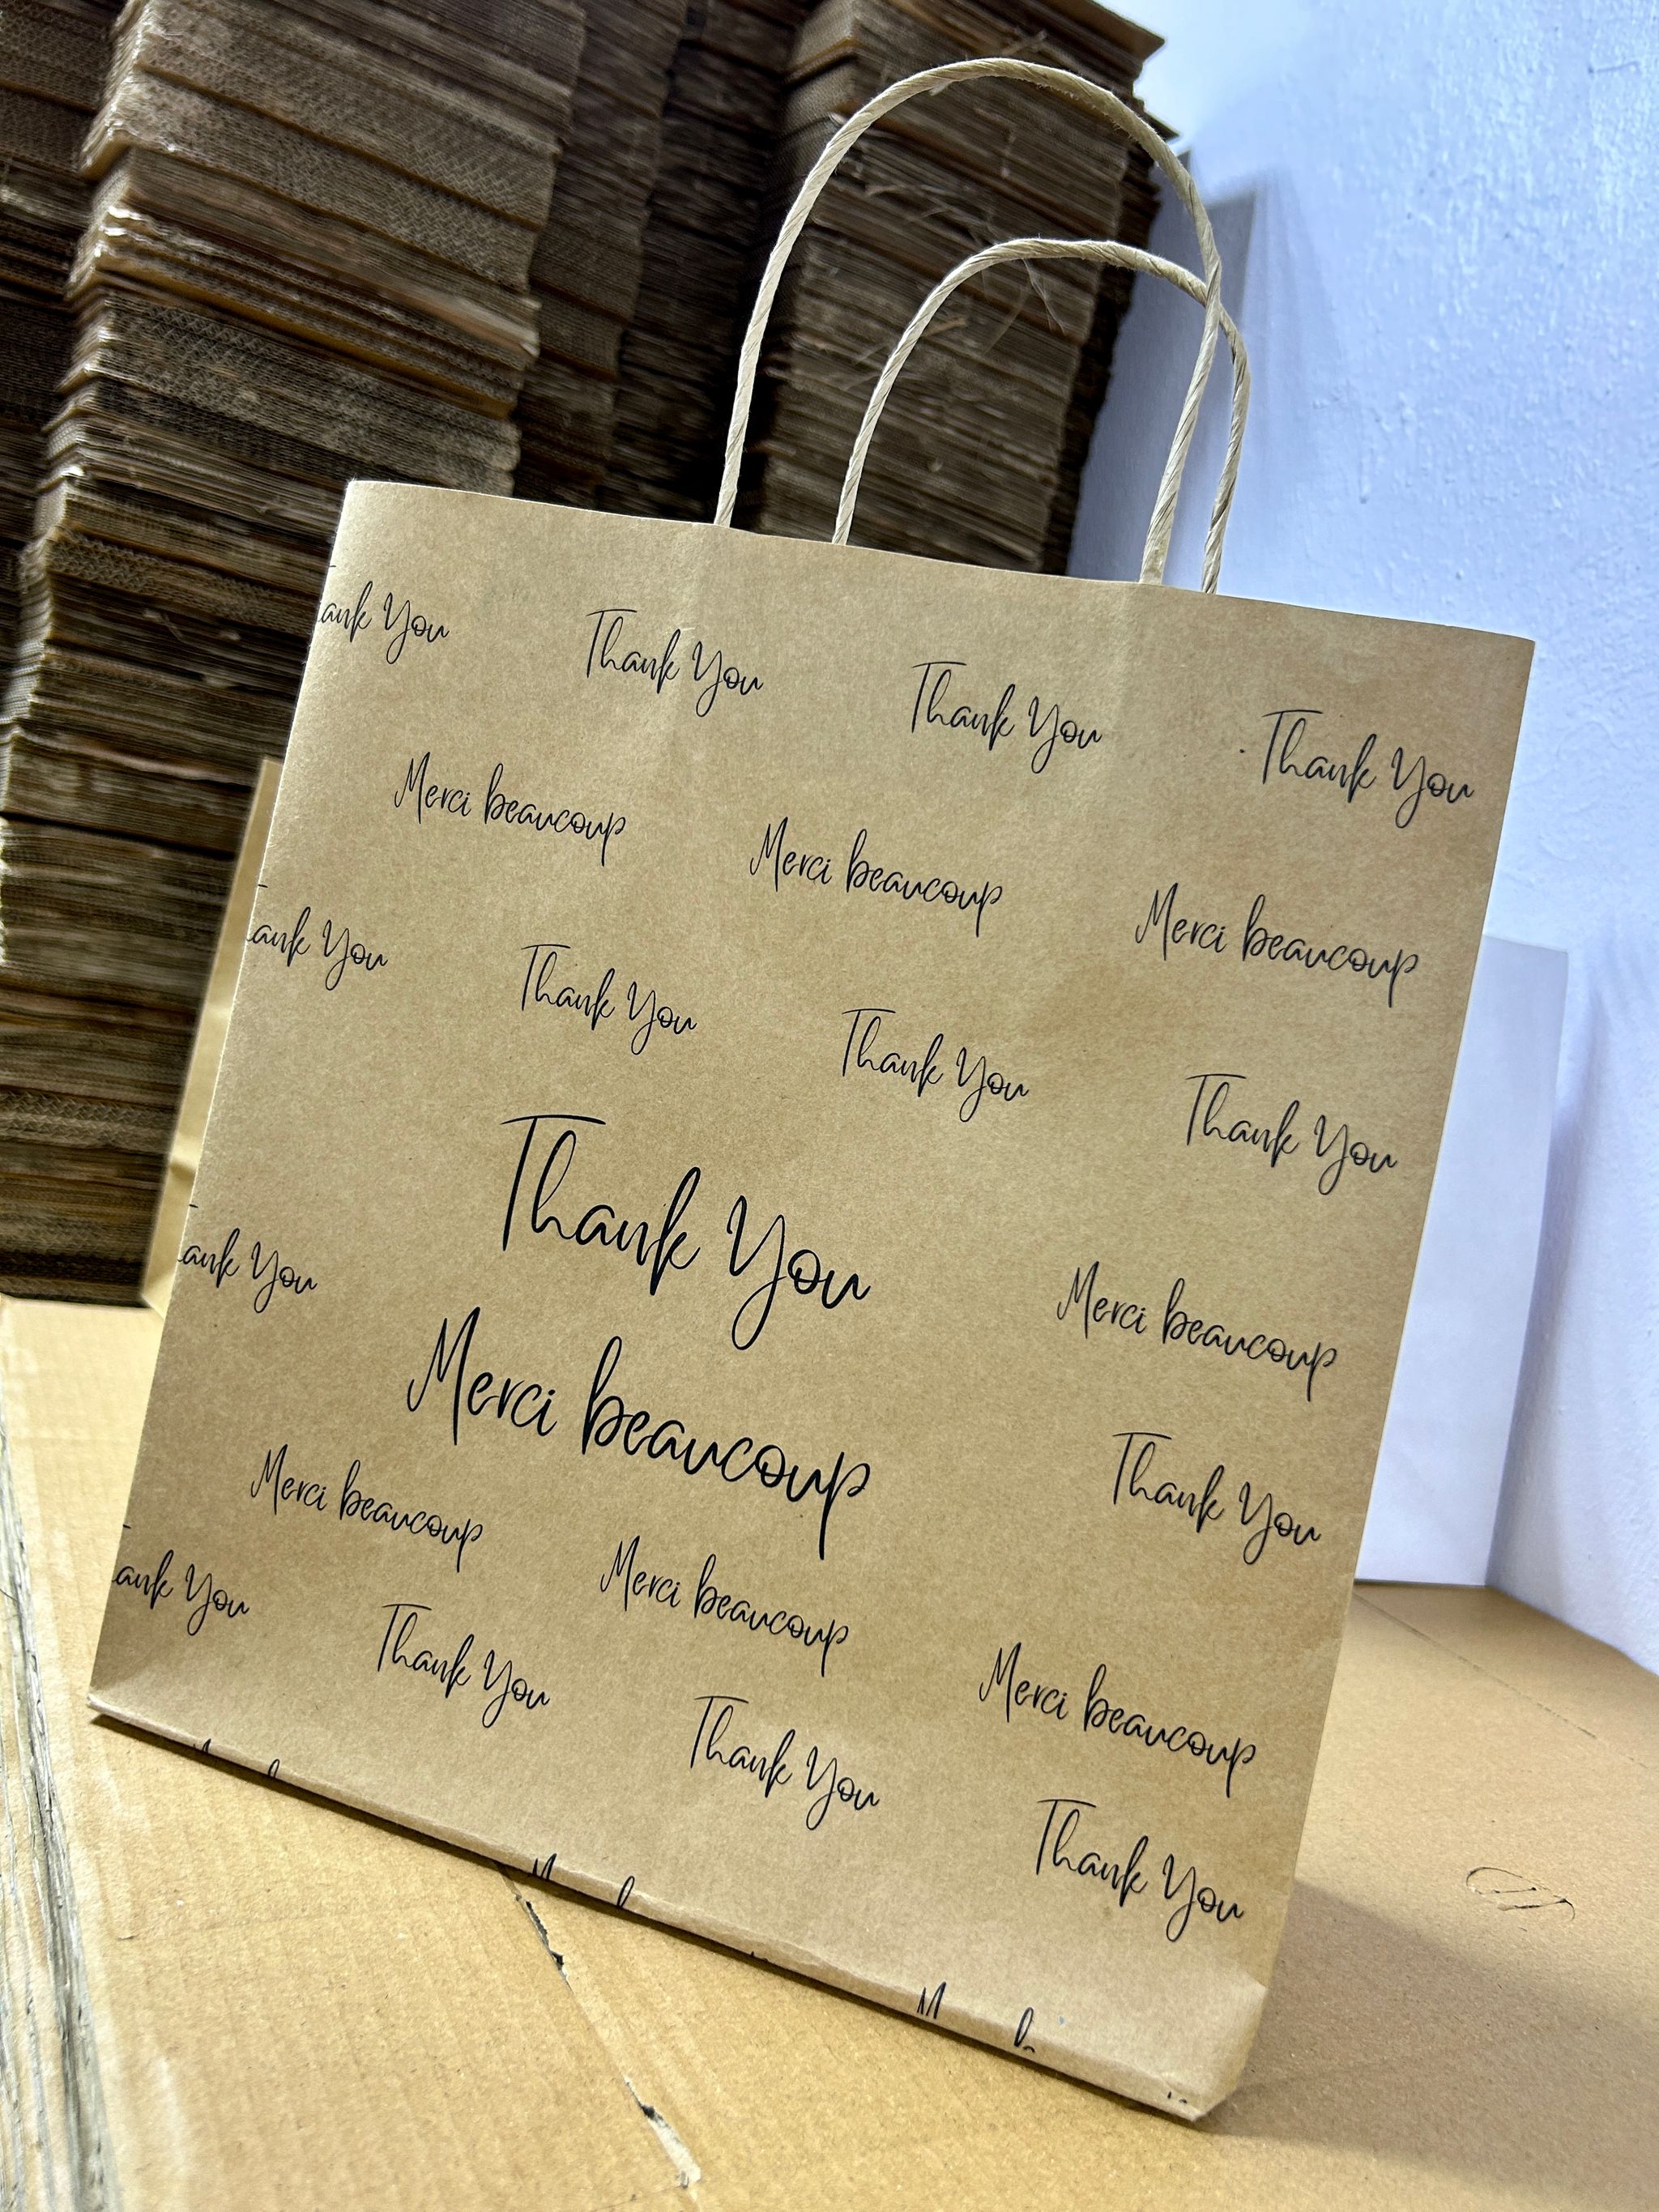 ank You Thank You Thank You Thank You
Merci beaucoup Merci beaucoup Merci beaucoup
ank You Thank You Thank You Thank You
Thank You
ank You Merci beaucoup
Merci beaucoup
Thank You
Merci beaucoup Merci beaucoup Merci beaucoup
ank You Thank You Thank You Thank You